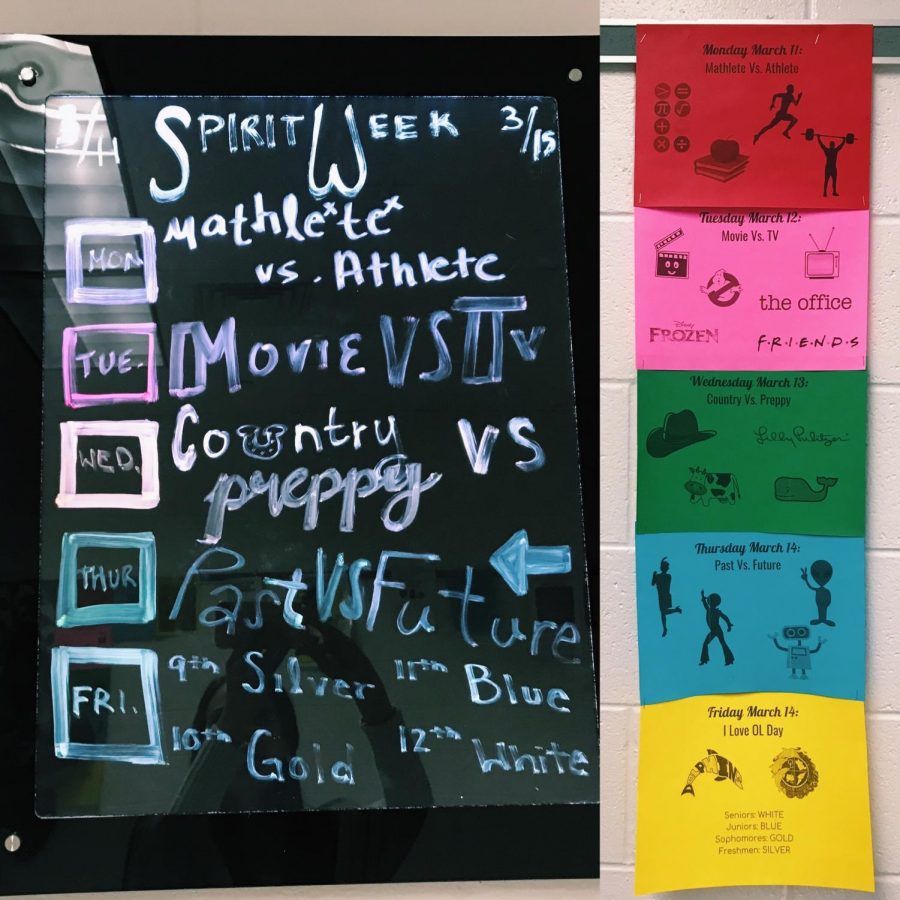 3/11 SPIRIT WEEK 3/15
MON Mathlete
vs. Athlete
TUE. MOVIE VS TV
WED. Country VS
preppy
THUR Past VS Future
FRI. 9th Silver 11th Blue
10th Gold 12th White
Monday March 11:
Mathlete Vs. Athlete
Tuesday March 12:
Movie Vs. TV
the office
Disney
FROZEN
F·R·I·E·N·D·S
Wednesday March 13:
Country Vs. Preppy
Lilly Pulitzer
Thursday March 14:
Past Vs. Future
Friday March 14:
I Love OL Day
DOLPHINS
Seniors: WHITE
Juniors: BLUE
Sophomores: GOLD
Freshmen: SILVER